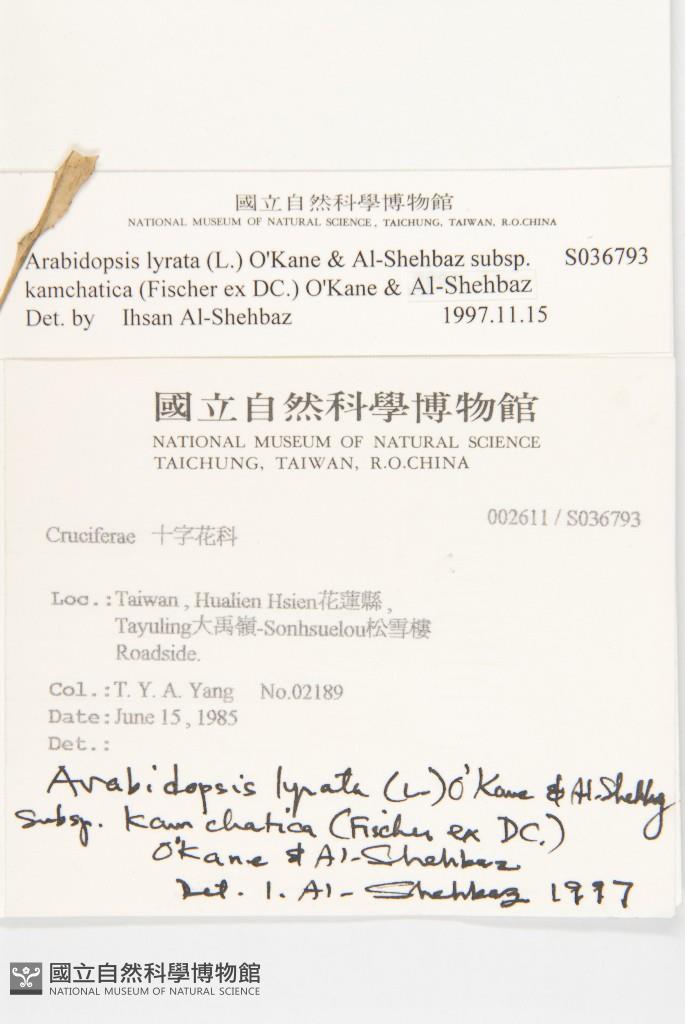 國立自然科學博物館
NATIONAL MUSEUM OF NATURAL SCIENCE, TAICHUNG, TAIWAN, R.O.CHINA
Arabidopsis lyrata (L.) O'Kane & Al-Shehbaz subsp. S036793
kamchatica (Fischer ex DC.) O'Kane & Al-Shehbaz
Det. by Ihsan Al-Shehbaz 1997.11.15
國立自然科學博物館
NATIONAL MUSEUM OF NATURAL SCIENCE
TAICHUNG, TAIWAN, R.O.CHINA
002611 / S036793
Cruciferae 十字花科
Loc.: Taiwan , Hualien Hsien花蓮縣 ,
Tayuling大禹嶺-Sonhsuelou松雪樓
Roadside.
Col.: T. Y. A. Yang No.02189
Date: June 15 , 1985
Det.:
Arabidopsis lyrata (L.) O'Kane & Al-Shehbaz
subsp. kamchatica (Fischer ex DC.)
O'Kane & Al-Shehbaz
Det. I. Al-Shehbaz 1997
國立自然科學博物館
NATIONAL MUSEUM OF NATURAL SCIENCE